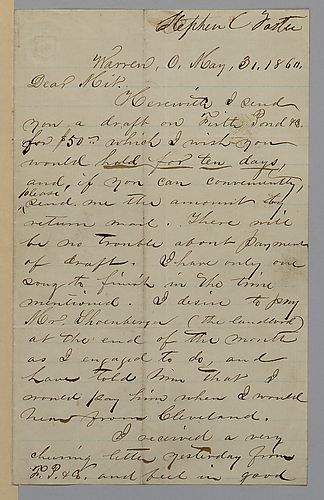 Stephen C Foster
Warren, O. May, 31. 1860.
Dear Mit.
Herewith I send
you a draft on Firth Pond &Co.
for $50.00 which I wish you
would hold for ten days,
and, if you can conveniently,
please
send me the amount by
return mail. There will
be no trouble about payment
of draft. I have only one
song to finish in the time
mentioned. I desire to pay
Mr. Shoenberger (the landlord)
at the end of the month
as I engaged to do, and
have told him that I
would pay him when I would
hear from Cleveland.
I received a very
cheering letter yesterday from
F. P. & C. and feel in good